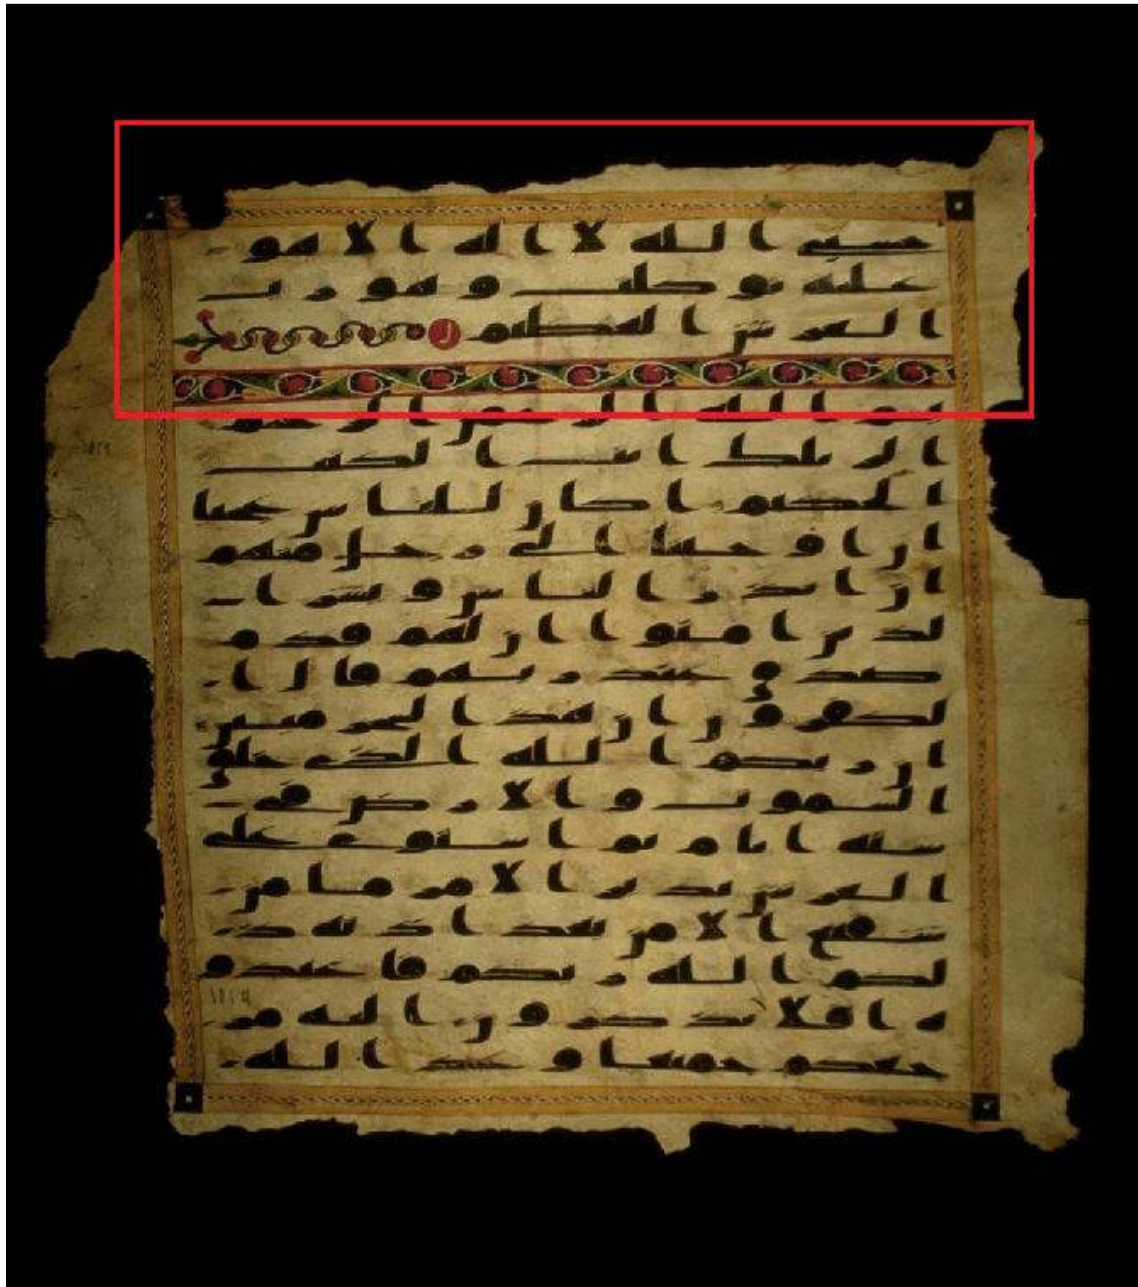 حسبي الله لا اله الا هو
عليه توكلت وهو رب
العرش العظيم
بسم الله الرحمن الرحيم
الر تلك ايت الكتب
الحكيم ا كان للناس عجبا
ان اوحينا الى رجل منهم
ان انذر الناس وبشر ا
لذين امنوا ان لهم قدم
صدق عند ربهم قال ا
لكفرون ان هذا لسحر مبين
ان ربكم الله الذي خلق
السموت والارض في
ستة ايام ثم استوى على
العرش يدبر الامر ما من
شفيع الا من بعد اذنه ذ
لكم الله ربكم فاعبدو
ه افلا تذكرون اليه مر
جعكم جميعا وعد الله